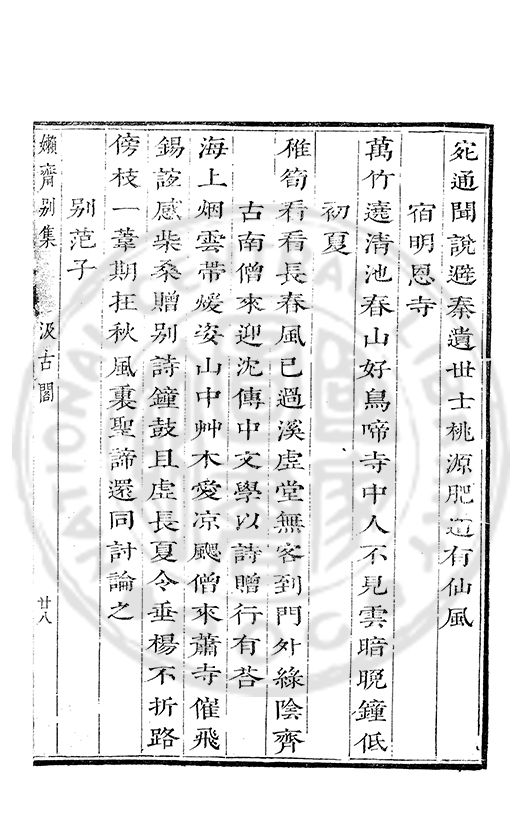 宛通聞說避秦遺世士桃源肥遁有仙風
宿明恩寺
萬竹遶清池春山好鳥啼寺中人不見雲暗晚鐘低
初夏
稚筍看看長春風已過溪虛堂無客到門外綠陰齊
古南僧來迎沈傳中文學以詩贈行有荅
海上烟雲帶煖姿山中艸木愛凉颸僧來蕭寺催飛
錫詼感柴桑贈別詩鐘鼓且虛長夏令垂楊不折路
傍枝一葦期在秋風裏聖諦還同討論之
別范子
嬾齋別集
汲古閣
廿八